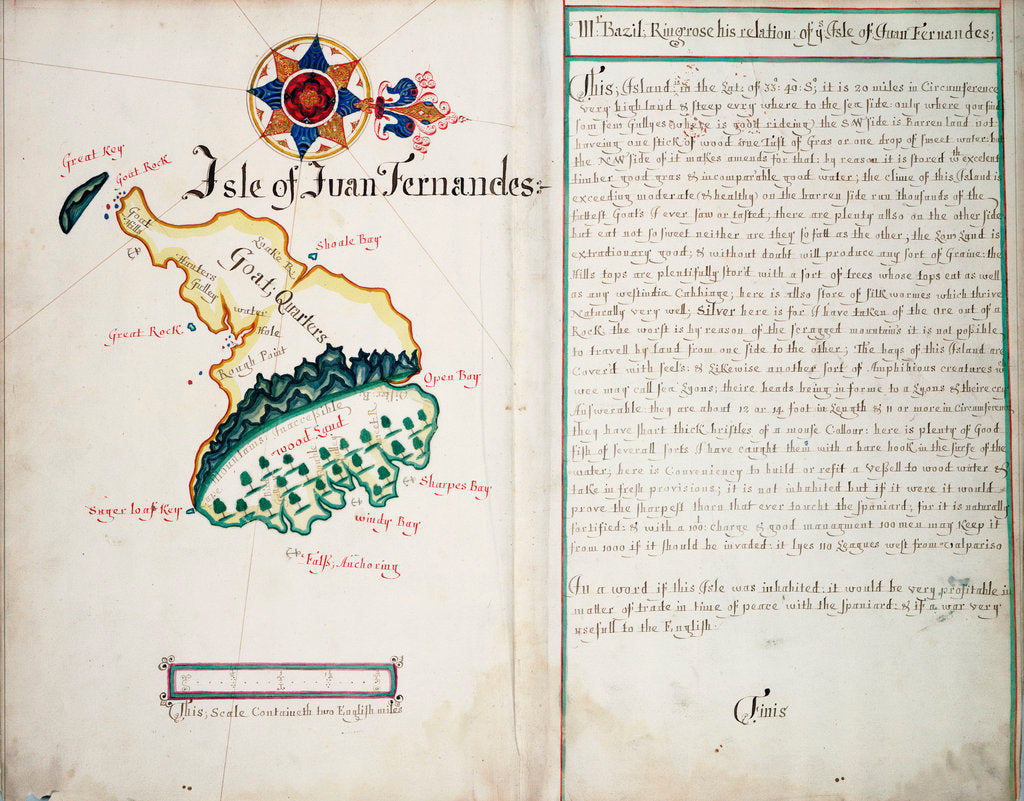 Great Key
Goat Rock
Isle of Juan Fernandes:
Goat
Hills
Shoale Bay
Goat; Quarters
Hunters
Gulley
water
Hole
Great Rock
Rough Point
Open Bay
Mountains; Inaccessible
wood Land
Sharpes Bay
Suger loaf Key
windy Bay
Fals; Anchoring
This; Scale Containeth two English miles
Mr Bazil; Ringrose his relation: of ys Isle of Juan Fernandes;
This; Island is in the Lat: of 33: 40: So; it is 20 miles in Circumference
very high land & steep evry where to the sea side: only where you find
som few Gullyes where is good rideing the SW side is Barren land not
haveing one stick of wood one Tuft of Gras or one drop of sweet water: but
the NW side of it makes amends for that: by reason it is stored wth excelent
timber good gras & incomparable good water; the clime of this Island is
exceeding moderate (& healthy) on the barren side run thousands of the
fattest Goats I ever saw or tasted; there are plenty allso on the other side
but eat not so sweet neither are they so fatt as the other; the Low Land is
extradionary good; & without doubt will produce any sort of Graine: the
Hills tops are plentifully stor'd with a sort of trees whose tops eat as well
as any westindia Cabbiage; here is allso store of silk wormes which thrive
Naturally very well; Silver here is for I have taken of the Ore out of a
Rock the worst is by reason of the scragged mountain's it is not posible
to travell by Land from one side to the other; The bays of this Island are
Cover'd with seels: & Likewise another sort of Amphibious creatures wch
wee may call sea Lyons; theire heads being in forme to a Lyons & theire cry
Answerable: they are about 12 or 14 foot in Length & 11 or more in Circumference
they have short thick bristles of a mouse Callour: here is plenty of Good
Fish of severall sorts I have caught them with a bare hook in the surfe of the
water; here is Conveniency to build or refit a vessell to wood water &
take in fresh provisions; it is not inhabited but if it were it would
prove the sharpest thorn that ever toucht the spaniard; for it is naturally
fortified: & with a 100l: charge & good managment 100 men may Keep it
from 1000 if it should be invaded: it lyes 110 Leagues west from valpariso
In a word if this Isle was inhabited: it would be very profitable in
matter of trade in time of peace with the spaniard: & if a war very
usefull to the English:
Finis